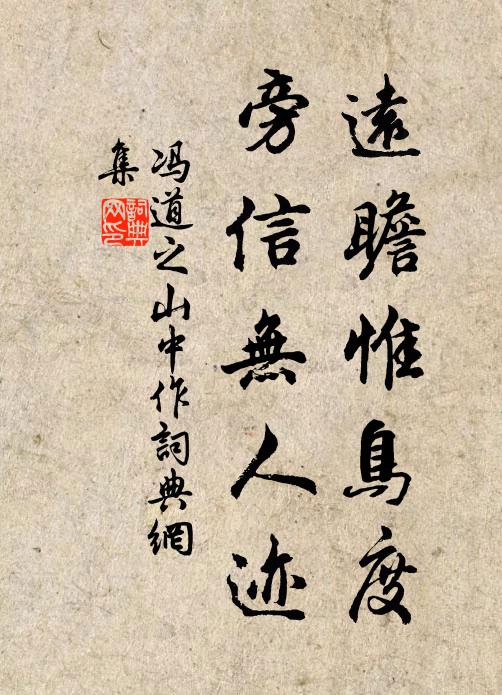 遠瞻惟鳥度
旁信無人迹
冯道之山中作詞典網
集
詞典
网印